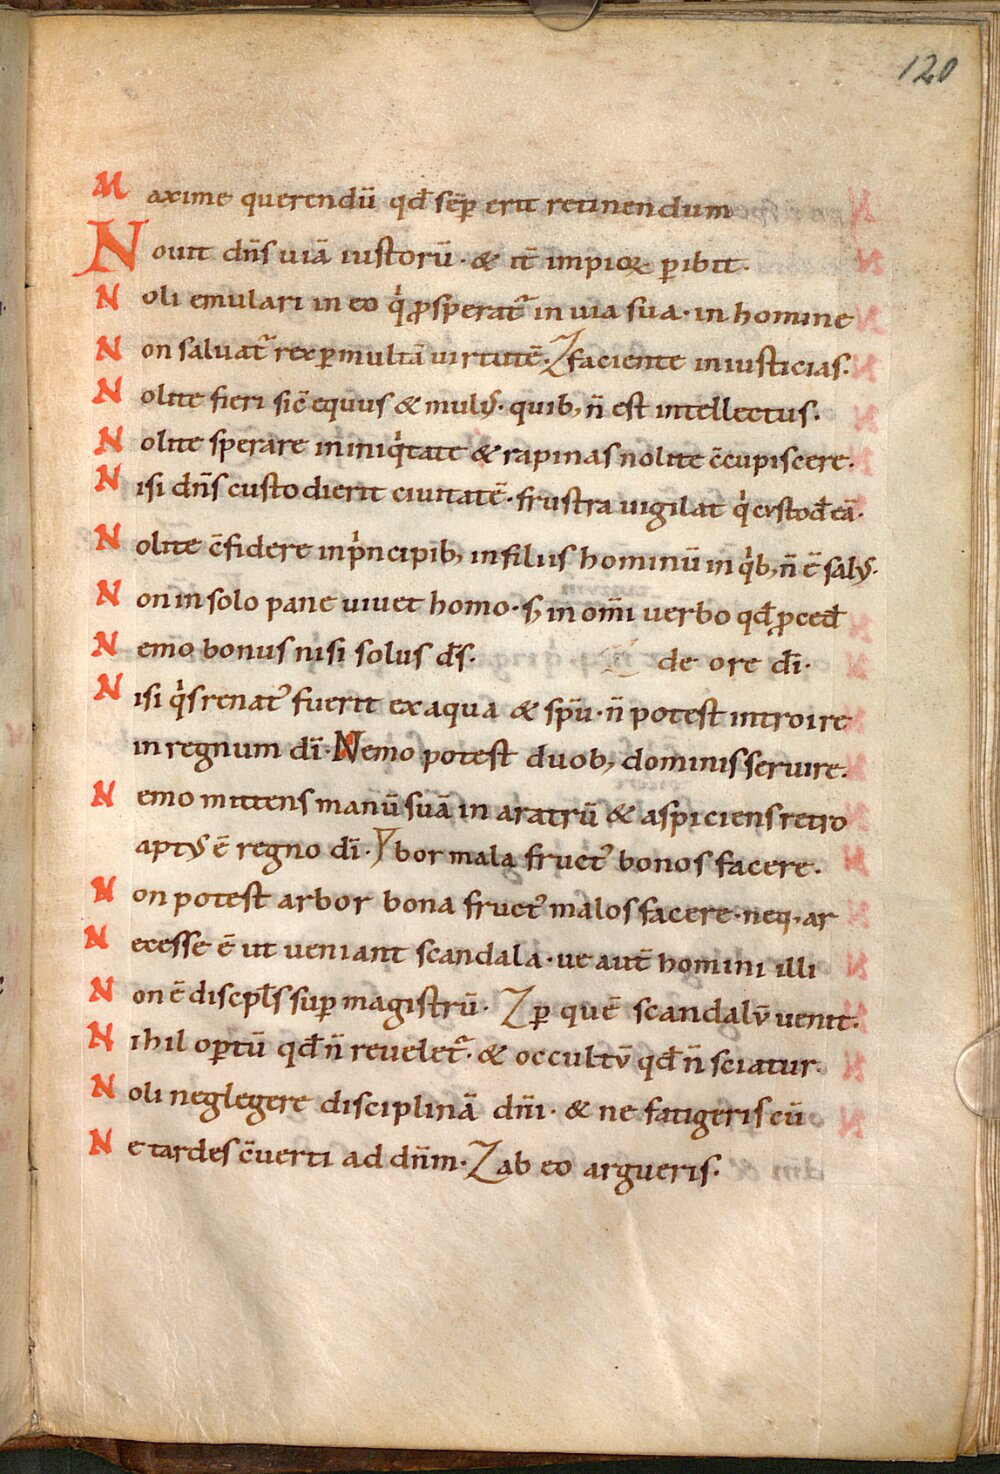 120
Maxime querendū qđ sēp erit retinendum
Nouit dn̄s uiā iustorū · & it̄ impioꝝ ꝑibit.
Noli emulari in eo qͥ ꝓsperat᷑ in uia sua · in homine
Non saluat᷑ rex ꝑ multā uirtutē. faciente iniusticias.
Nolite fieri sic̄ equus & mulꝰ · quibꝫ n̄ est intellectus.
Nolite sperare in iniqͥtate & rapinas nolite c̄cupiscere.
Nisi dn̄s custodierit ciuitatē · frustra uigilat qͥ custođ eā.
Nolite c̄fidere in pͥncipibꝫ in filiis hominū in qͥbꝫ n̄ ē salꝰ.
Non in solo pane uiuet homo · ꝫ in om̄i uerbo qđ ꝓceđ
Nemo bonus nisi solus d̄s. de ore dī.
Nisi qͥs renatꝰ fuerit ex aqua & sp̄u · n̄ potest introire
in regnum dī. Nemo potest duobꝫ dominis seruire.
Nemo mittens manū suā in aratrū & aspiciens retro
aptꝰ ē regno dī. bor mala fructꝰ bonos facere.
Non potest arbor bona fructꝰ malos facere · neqꝫ ar
Necesse ē ut ueniant scandala · ue aut̄ homini illi
Non ē discipl̄s suꝑ magistrū. ꝑ quē scandalū uenit.
Nihil oꝑtū qđ n̄ reuelet᷑ · & occultū qđ n̄ sciatur.
Noli neglegere disciplinā dn̄i · & ne fatigeris cū
Ne tardes c̄uerti ad dn̄m. ab eo argueris.